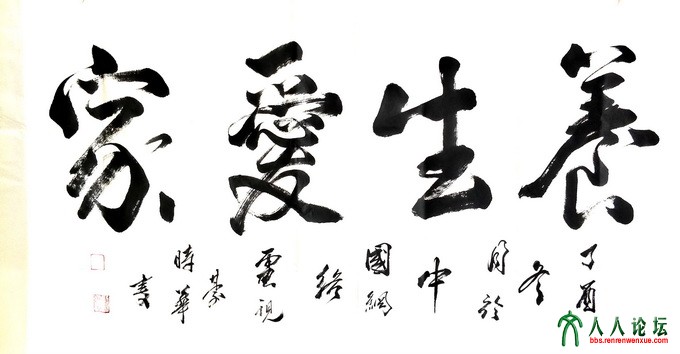 養生愛家
丁酉冬月於中國網絡電視 時華書
人人论坛
bbs.renrenwenxue.com